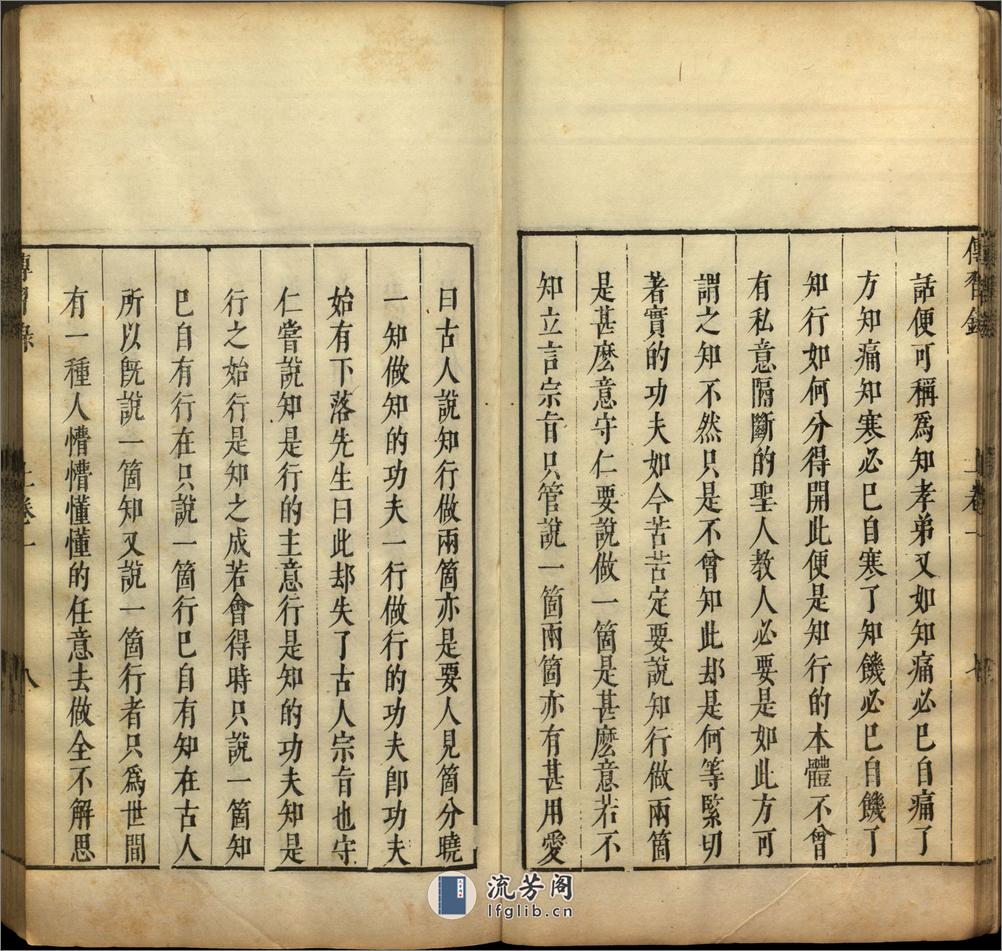 傳習錄 上卷一 七
話便可稱爲知孝弟又如知痛必已自痛了
方知痛知寒必已自寒了知饑必已自饑了
知行如何分得開此便是知行的本體不曾
有私意隔斷的聖人教人必要是如此方可
謂之知不然只是不曾知此却是何等緊切
著實的功夫如今苦苦定要說知行做兩箇
是甚麽意守仁要說做一箇是甚麽意若不
知立言宗旨只管說一箇兩箇亦有甚用愛
曰古人說知行做兩箇亦是要人見箇分曉
一知做知的功夫一行做行的功夫卽功夫
始有下落先生曰此却失了古人宗旨也守
仁嘗說知是行的主意行是知的功夫知是
行之始行是知之成若會得時只說一箇知
已自有行在只說一箇行已自有知在古人
所以旣說一箇知又說一箇行者只爲世間
有一種人懵懵懂懂的任意去做全不解思
傳習錄 上卷一 八
流芳阁
lfglib.cn